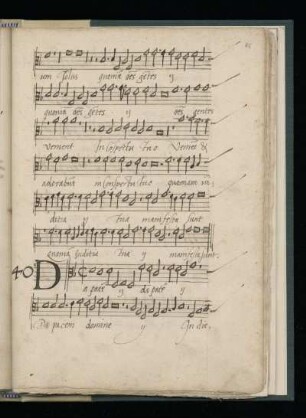 um solus quonia oēs gētes y
quonia oēs gētes y oēs gentes
venient In conspectu tuo Venient &
adorabūt in conspectu tuo quoniam in
dicia y tua manifesta sunt
quonia Iudicia tua y manifesta sunt.
40 D
a pacē y da pacē y
Da pacem domine y In die